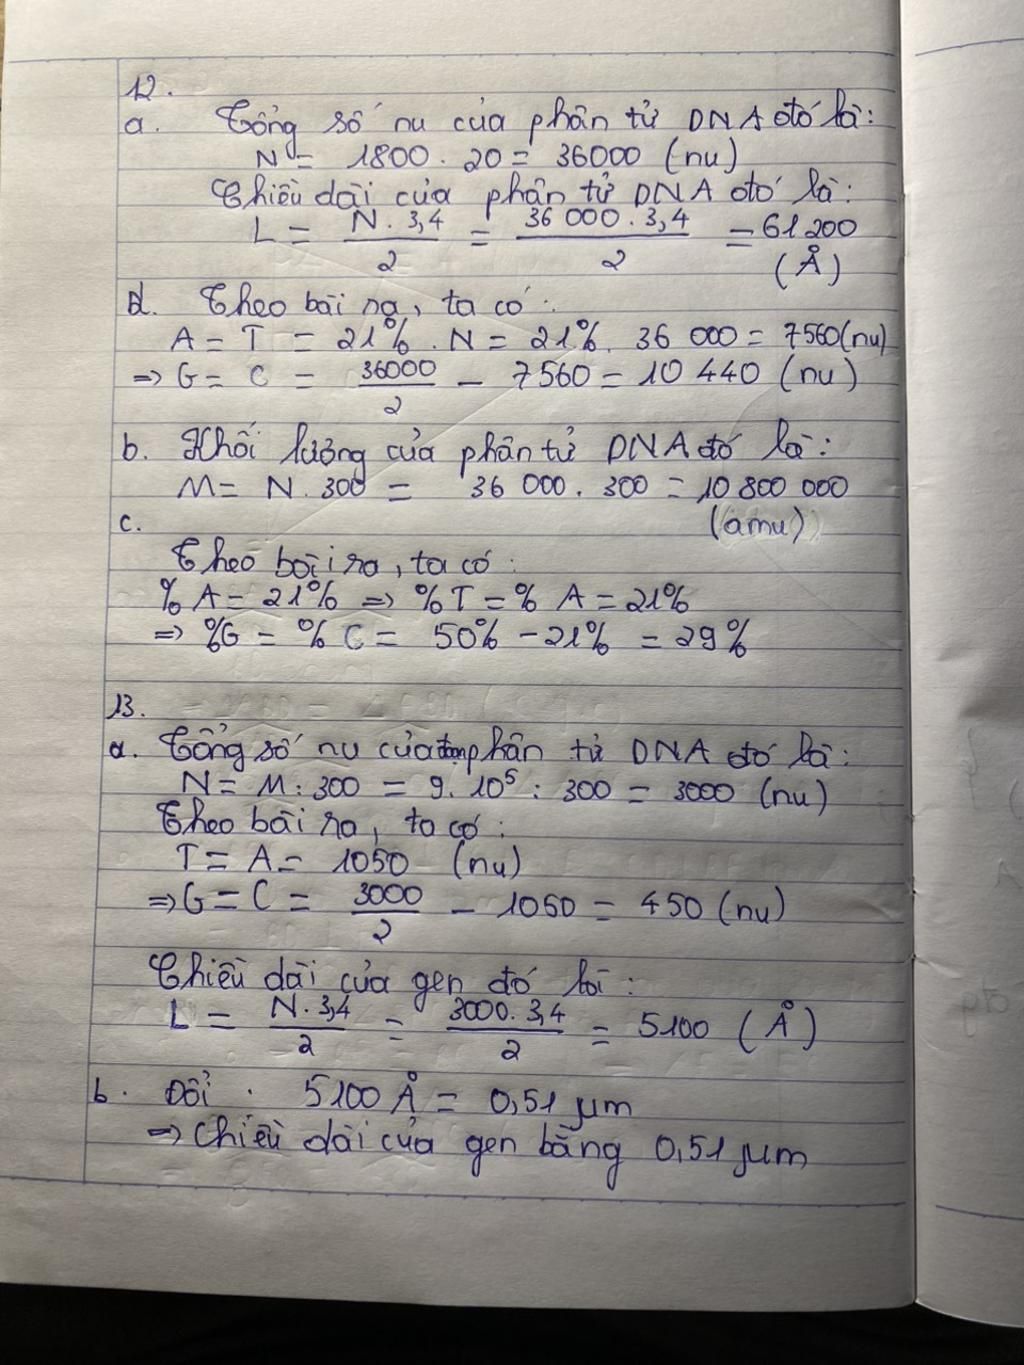 12.
a. Tổng số nu của phân tử DNA đó là:
N = 1800 . 20 = 36000 (nu)
Chiều dài của phân tử DNA đó là:
L = N . 3,4 / 2 = 36 000 . 3,4 / 2 = 61 200
(Å)
d. Theo bài ra, ta có:
A = T = 21% . N = 21% . 36 000 = 7560 (nu)
=> G = C = 36000 / 2 - 7560 = 10 440 (nu)
b. Khối lượng của phân tử DNA đó là:
M = N . 300 = 36 000 . 300 = 10 800 000
(amu)
c.
Theo bài ra, ta có:
% A = 21% => % T = % A = 21%
=> %G = % C = 50% - 21% = 29%
13.
a. Tổng số nu của phân tử DNA đó là:
N = M : 300 = 9. 10⁵ : 300 = 3000 (nu)
Theo bài ra, ta có:
T = A = 1050 (nu)
=> G = C = 3000 / 2 - 1050 = 450 (nu)
Chiều dài của gen đó là:
L = N . 3,4 / 2 = 3000 . 3,4 / 2 = 5100 (Å)
b. Đổi : 5100 Å = 0,51 µm
=> Chiều dài của gen bằng 0,51 µm